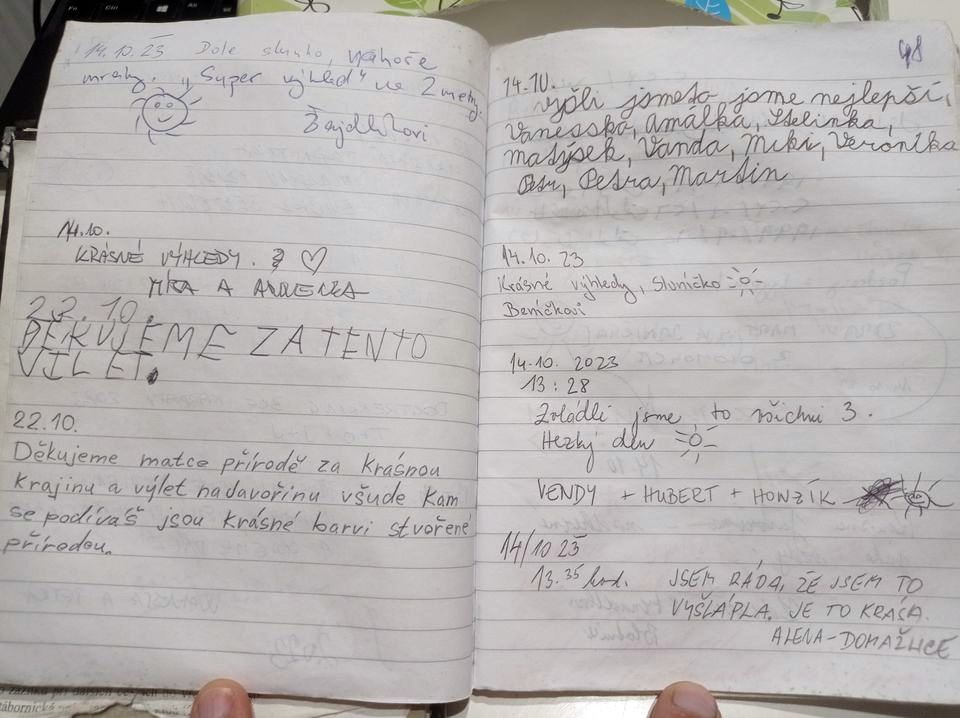 14.10.23 Dole slunko, nahoře
mraky. „Super výhled" na 2 metry.
Žajdlíkovi
14.10.
KRÁSNÉ VÝHLEDY.
MÍRA A ANNENKA
22.10.
DĚKUJEME ZA TENTO
VILET.
22.10.
Děkujeme matce přírodě za krásnou
krajinu a výlet nadavořinu všude kam
se podíváš jsou krásné barvi stvořené
přírodou.
48
14.10.
Vyšli jsme to jsme nejlepší,
Vanesska, Amálka, Stelinka,
Matýsek, Vanda, Miki, Veronika
Petr, Petra, Martin
14.10.23
Krásné výhledy, Sluníčko
Beníčkovi
14.10.2023
13:28
Zvládli jsme to všichni 3.
Hezký den
VENDY + HUBERT + HONZÍK
14/10 23
13.35 hod. JSEM RÁDA, ŽE JSEM TO
VYŠLÁPLA. JE TO KRÁSA.
ALENA-DOMAŽLICE